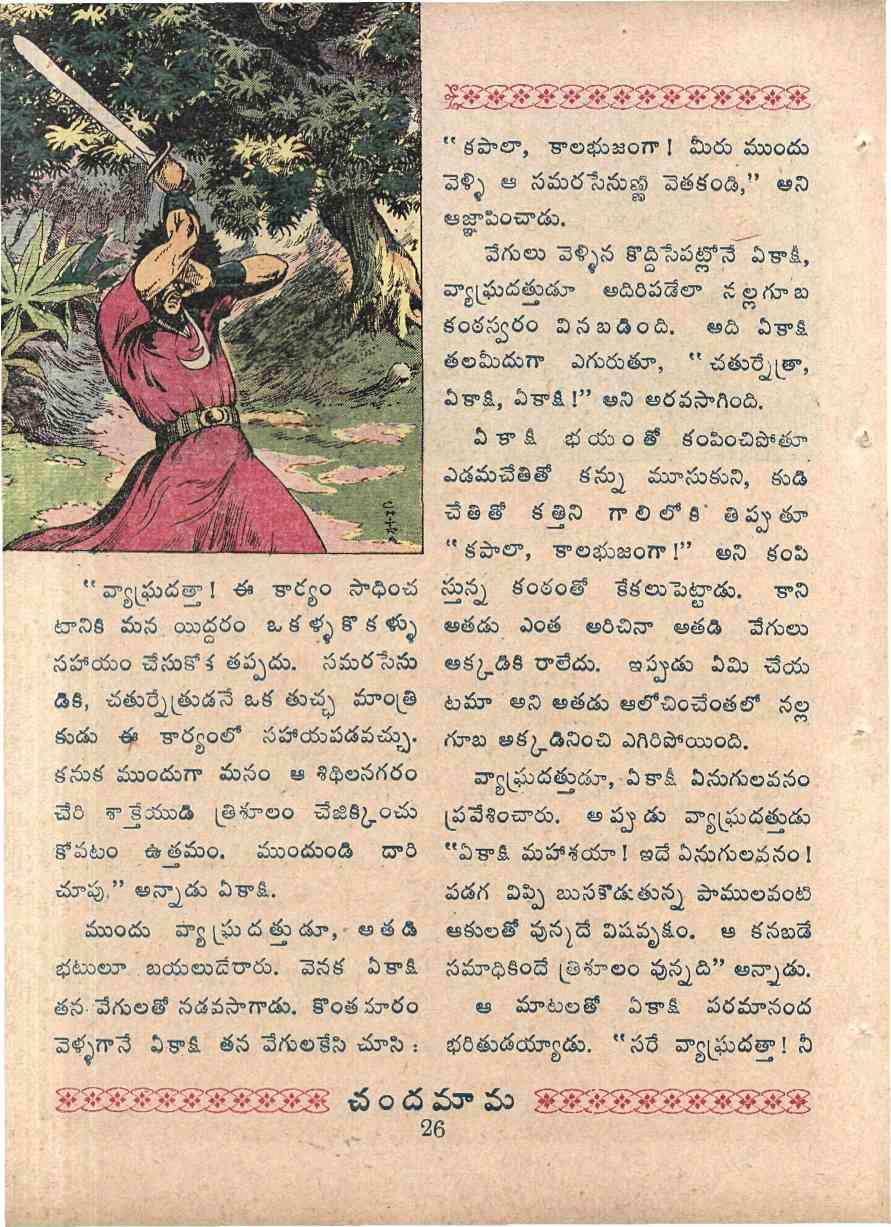 "వ్యాఘ్రదత్తా! ఈ కార్యం సాధించ
టానికి మన యిద్దరం ఒకళ్ళకొకళ్ళు
సహాయం చేసుకోక తప్పదు. సమరసేను
డికి, చతుర్నేత్రుడనే ఒక తుచ్ఛ మాంత్రి
కుడు ఈ కార్యంలో సహాయపడవచ్చు.
కనుక ముందుగా మనం ఆ శిథిలనగరం
చేరి శాక్తేయుడి త్రిశూలం చేజిక్కించు
కోవటం ఉత్తమం. ముందుండి దారి
చూపు," అన్నాడు ఏకాక్షి.
ముందు వ్యాఘ్రదత్తుడూ, అతడి
భటులూ బయలుదేరారు. వెనక ఏకాక్షి
తన వేగులతో నడవసాగాడు. కొంతదూరం
వెళ్ళగానే ఏకాక్షి తన వేగులకేసి చూసి :
"కపాలా, కాలభుజంగా! మీరు ముందు
వెళ్ళి ఆ సమరసేనుణ్ణి వెతకండి," అని
ఆజ్ఞాపించాడు.
వేగులు వెళ్ళిన కొద్దిసేపట్లోనే ఏకాక్షీ,
వ్యాఘ్రదత్తుడూ అదిరిపడేలా నల్లగూబ
కంఠస్వరం వినబడింది. అది ఏకాక్షి
తలమీదుగా ఎగురుతూ, "చతుర్నేత్రా,
ఏకాక్షి, ఏకాక్షి!" అని అరవసాగింది.
ఏకాక్షి భయంతో కంపించిపోతూ
ఎడమచేతితో కన్ను మూసుకుని, కుడి
చేతితో కత్తిని గాలిలోకి తిప్పుతూ
"కపాలా, కాలభుజంగా!" అని కంపి
స్తున్న కంఠంతో కేకలుపెట్టాడు. కాని
అతడు ఎంత అరిచినా అతడి వేగులు
అక్కడికి రాలేదు. ఇప్పుడు ఏమి చేయ
టమా అని అతడు ఆలోచించేంతలో నల్ల
గూబ అక్కడినించి ఎగిరిపోయింది.
వ్యాఘ్రదత్తుడూ, ఏకాక్షీ ఏనుగులవనం
ప్రవేశించారు. అప్పుడు వ్యాఘ్రదత్తుడు
"ఏకాక్షి మహాశయా! ఇదే ఏనుగులవనం!
పడగ విప్పి బుసకొడుతున్న పాములవంటి
ఆకులతో వున్నదే విషవృక్షం. ఆ కనబడే
సమాధికిందే త్రిశూలం వున్నది" అన్నాడు.
ఆ మాటలతో ఏకాక్షి పరమానంద
భరితుడయ్యాడు. "సరే వ్యాఘ్రదత్తా! నీ
CHITRA
చందమామ
26